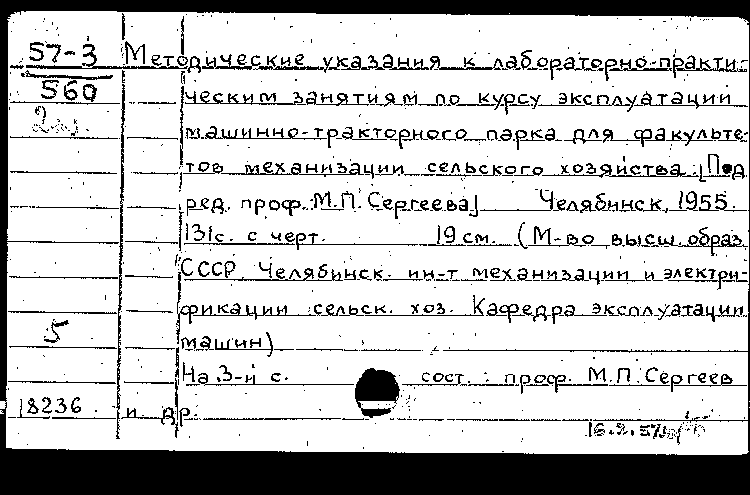 57-3 Методические указания к лабораторно-практи-
560 ческим занятиям по курсу эксплуатации
машинно-тракторного парка для факульте-
тов механизации сельского хозяйства. [Под
ред. проф. М.П. Сергеева] Челябинск, 1955.
131с. с черт. 19 см. (М-во высш. образ.
СССР. Челябинск. ин-т механизации и электри-
фикации сельск. хоз. Кафедра эксплуатации
5 машин)
На 3-й с. сост.: проф. М.П. Сергеев
18236 и др.
16.2.57